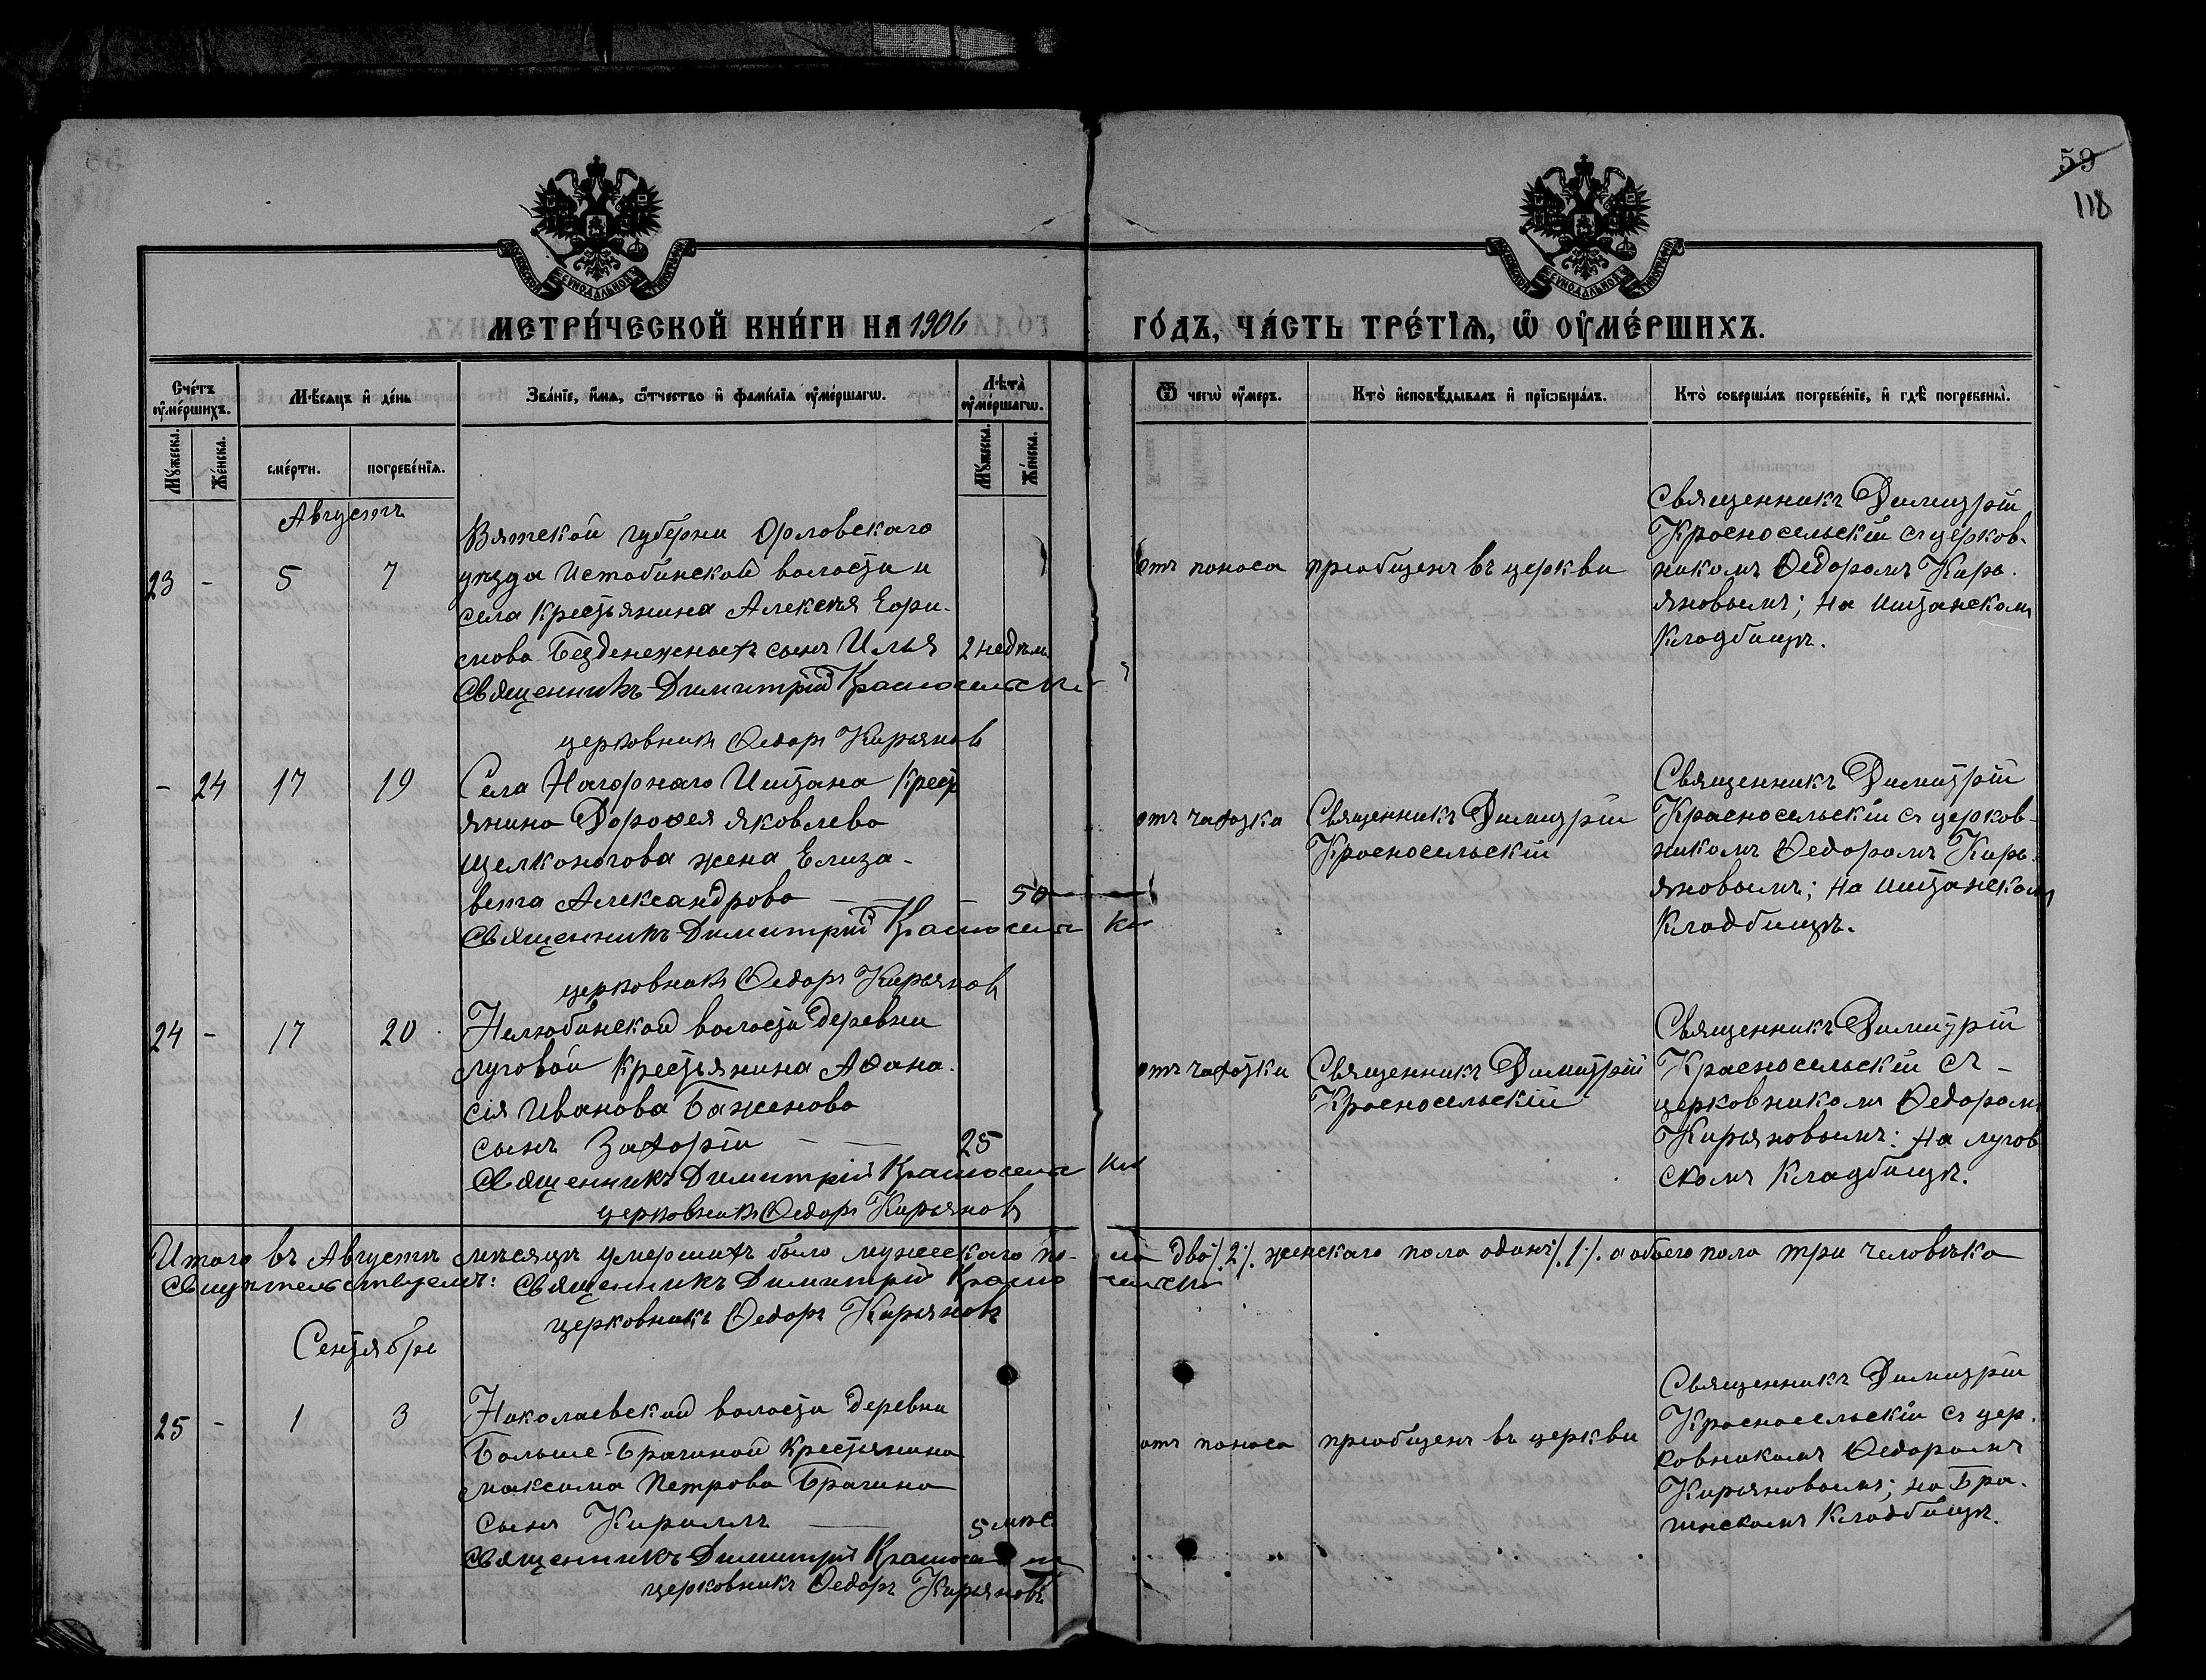 59
118
МЕТРИ́ЧЕСКОЙ КНИ́ГИ НА 1906 ГО́ДЪ, ЧА́СТЬ ТРЕ́ТІѦ, Ѽ ОУМЕ́РШИХЪ.
Сче́тъ оумершихъ.
Мꙋжеска.
Же́нска.
Мѣсяцъ и де́нь
сме́рти.
погребе́нїѧ.
Зва́нїе, и́мѧ, ѻтчество и фами́лїѧ оуме́ршагѡ.
Лѣта̀ оуме́ршагѡ.
Мꙋжеска.
Же́нска.
Ѿ чегѡ̀ оумеръ.
Кто̀ исповѣдывалъ и прїѡбща́лъ.
Кто̀ соверша́лъ погребе́нїе, и гдѣ погребены̀.
Августъ
23 - 5 7
Вятской губерни Орловскаго
уѣзда Истобинской волости и
села крестьянина Алексѣя Бори-
сова Безденежныхъ сынъ Илья 2 недѣли
Священникъ Димитрій Красносельскій
церковникъ Ѳедоръ Кирьяновъ
отъ поноса
преобщенъ въ церкви
Священникъ Димитрій
Красносельскій съ церков-
никомъ Ѳедоромъ Кирь-
яновымъ; на Иштанскомъ
кладбищѣ.
- 24 17 19
Села Нагорнаго Иштана крест
янина Дороѳея Яковлева
Щелконогова жена Елиза-
вета Александрова — 50
Священникъ Димитрій Красносельскій
церковникъ Ѳедоръ Кирьяновъ
отъ чахотка
Священникъ Димитрій
Красносельскій
Священникъ Димитрій
Красносельскій съ церков-
никомъ Ѳедоромъ Кирь-
яновымъ; на Иштанскомъ
кладбищѣ.
24 - 17 20
Нелюбинской волости деревни
Луговой крестьянина Аѳана-
сія Иванова Баженова
сынъ Захарій — 25
Священникъ Димитрій Красносельскій
церковникъ Ѳедоръ Кирьяновъ
отъ чахотки
Священникъ Димитрій
Красносельскій
Священникъ Димитрій
Красносельскій съ
церковникомъ Ѳедоромъ
Кирьяновымъ: на лугов
скомъ кладбищѣ.
Итого въ Августѣ мѣсяцѣ умершихъ было мужескаго по-ла два /.2/. женскаго пола одинъ /.1/. а обоего пола три человѣка
Свидѣтельствуемъ: Священникъ Димитрій Красносельскій
церковникъ Ѳедоръ Кирьяновъ
Сентябрь
25 - 1 3
Николаевской волости деревни
Больше-Брагиной крестьянина
Максима Петрова Брагина
сынъ Кириллъ — 5 мѣс.
Священникъ Димитрій Красносельскій
церковникъ Ѳедоръ Кирьяновъ
отъ поноса
преобщенъ въ церкви
Священникъ Димитрій
Красносельскій съ цер-
ковникомъ Ѳедоромъ
Кирьяновымъ; на Бра-
гинскомъ кладбищѣ.